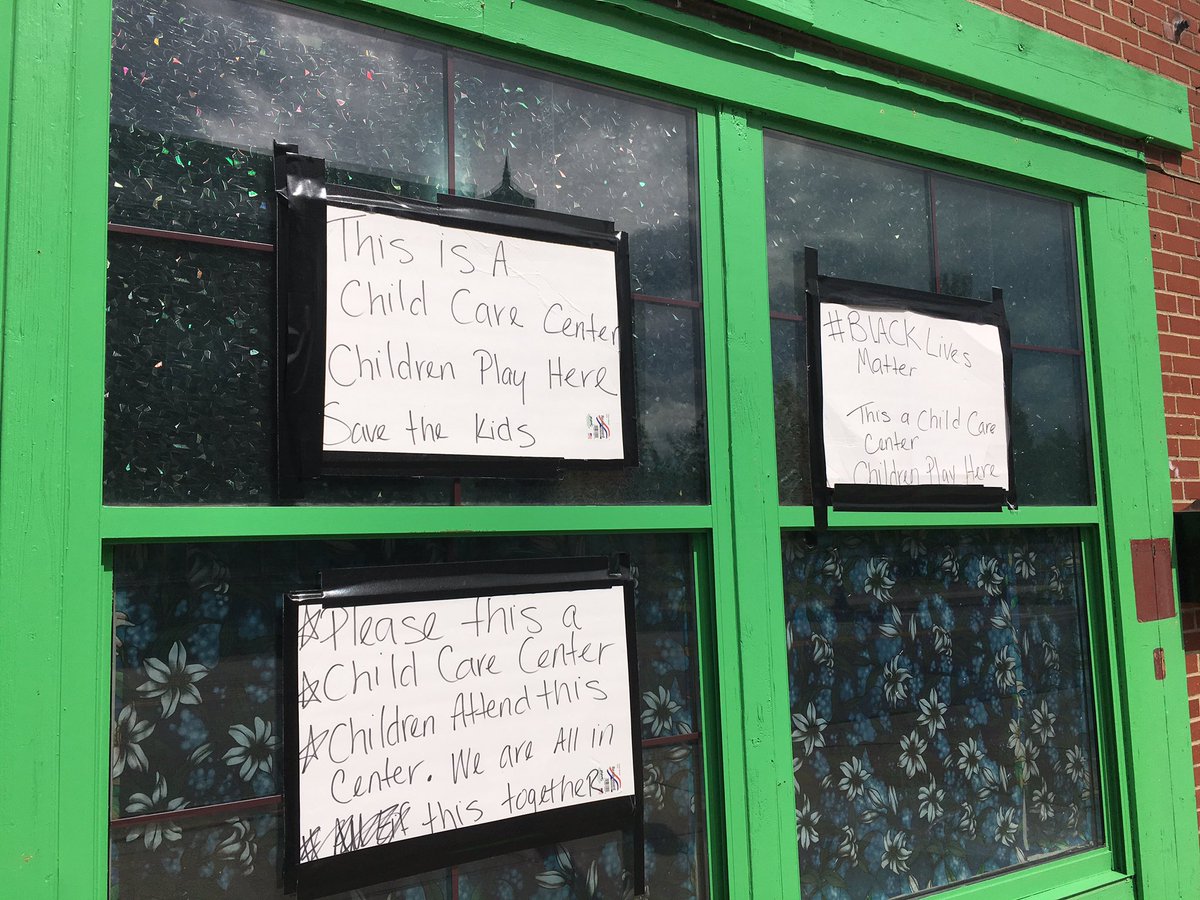 This is A
Child Care Center
Children Play Here
Save the Kids
#BLACK Lives
Matter
This a Child Care
Center
Children Play Here
Please this a
Child Care Center
Children Attend this
Center. We are All in
this together